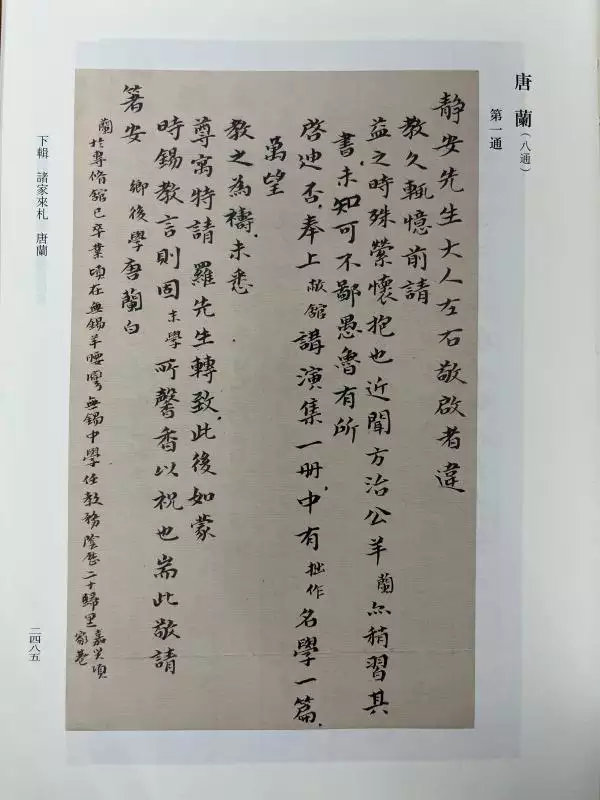 唐　蘭（八通）
第一通
靜安先生大人左右敬啟者違
教久輒憶前請
益之時殊縈懷抱也近聞方治公羊蘭亦稍習其
書，未知可不鄙愚魯有所
啓迪否，奉上敝館講演集一冊，中有拙作名學一篇，
萬望
教之為禱，未悉
尊寓特請　羅先生轉致，此後如蒙
時錫教言則固末學所馨香以祝也耑此敬請
箸安　鄉後學唐蘭白
蘭於專脩館已卒業頃在無錫羊腰灣無錫中學任教務陰歷二十歸里嘉興項家巷
下輯　諸家來札　唐蘭
二四八五